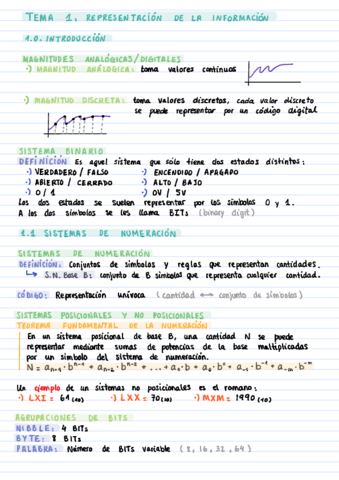 TEMA 1. REPRESENTACIÓN DE LA INFORMACIÓN
1.0. INTRODUCCIÓN
MAGNITUDES ANALÓGICAS/DIGITALES
·) MAGNITUD ANÁLOGICA: toma valores continuos
·) MAGNITUD DISCRETA: toma valores discretos, cada valor discreto
se puede representar por un código digital
SISTEMA BINARIO
DEFINICIÓN Es aquel sistema que sólo tiene dos estados distintos:
·) VERDADERO / FALSO ·) ENCENDIDO / APAGADO
·) ABIERTO / CERRADO ·) ALTO / BAJO
·) 0 / 1 ·) 0V / 5V
Los dos estados se suelen representar por los símbolos 0 y 1.
A los dos símbolos se les llama BITs (binary digit)
1.1 SISTEMAS DE NUMERACIÓN
SISTEMAS DE NUMERACIÓN
DEFINICIÓN: Conjuntos de símbolos y reglas que representan cantidades.
↳ S.N. Base B: conjunto de B símbolos que representa cualquier cantidad.
CÓDIGO: Representación unívoca (cantidad ↔ conjunto de símbolos)
SISTEMAS POSICIONALES Y NO POSICIONALES
TEOREMA FUNDAMENTAL DE LA NUMERACIÓN
En un sistema posicional de base B, una cantidad N se puede
representar mediante sumas de potencias de la base multiplicadas
por un símbolo del sistema de numeración.
N = aₙ₋₁·bⁿ⁻¹ + aₙ₋₂·bⁿ⁻² + ... + a₁·b + a₀·b⁰ + a₋₁·b⁻¹ + a₋ₘ·b⁻ᵐ
Un ejemplo de un sistemas no posicionales es el romano:
·) LXI = 61(10) ·) LXX = 70(10) ·) MXM = 1990(10)
AGRUPACIONES DE BITS
NIBBLE: 4 BITs
BYTE: 8 BITs
PALABRA: Número de BITs variable (8, 16, 32, 64)